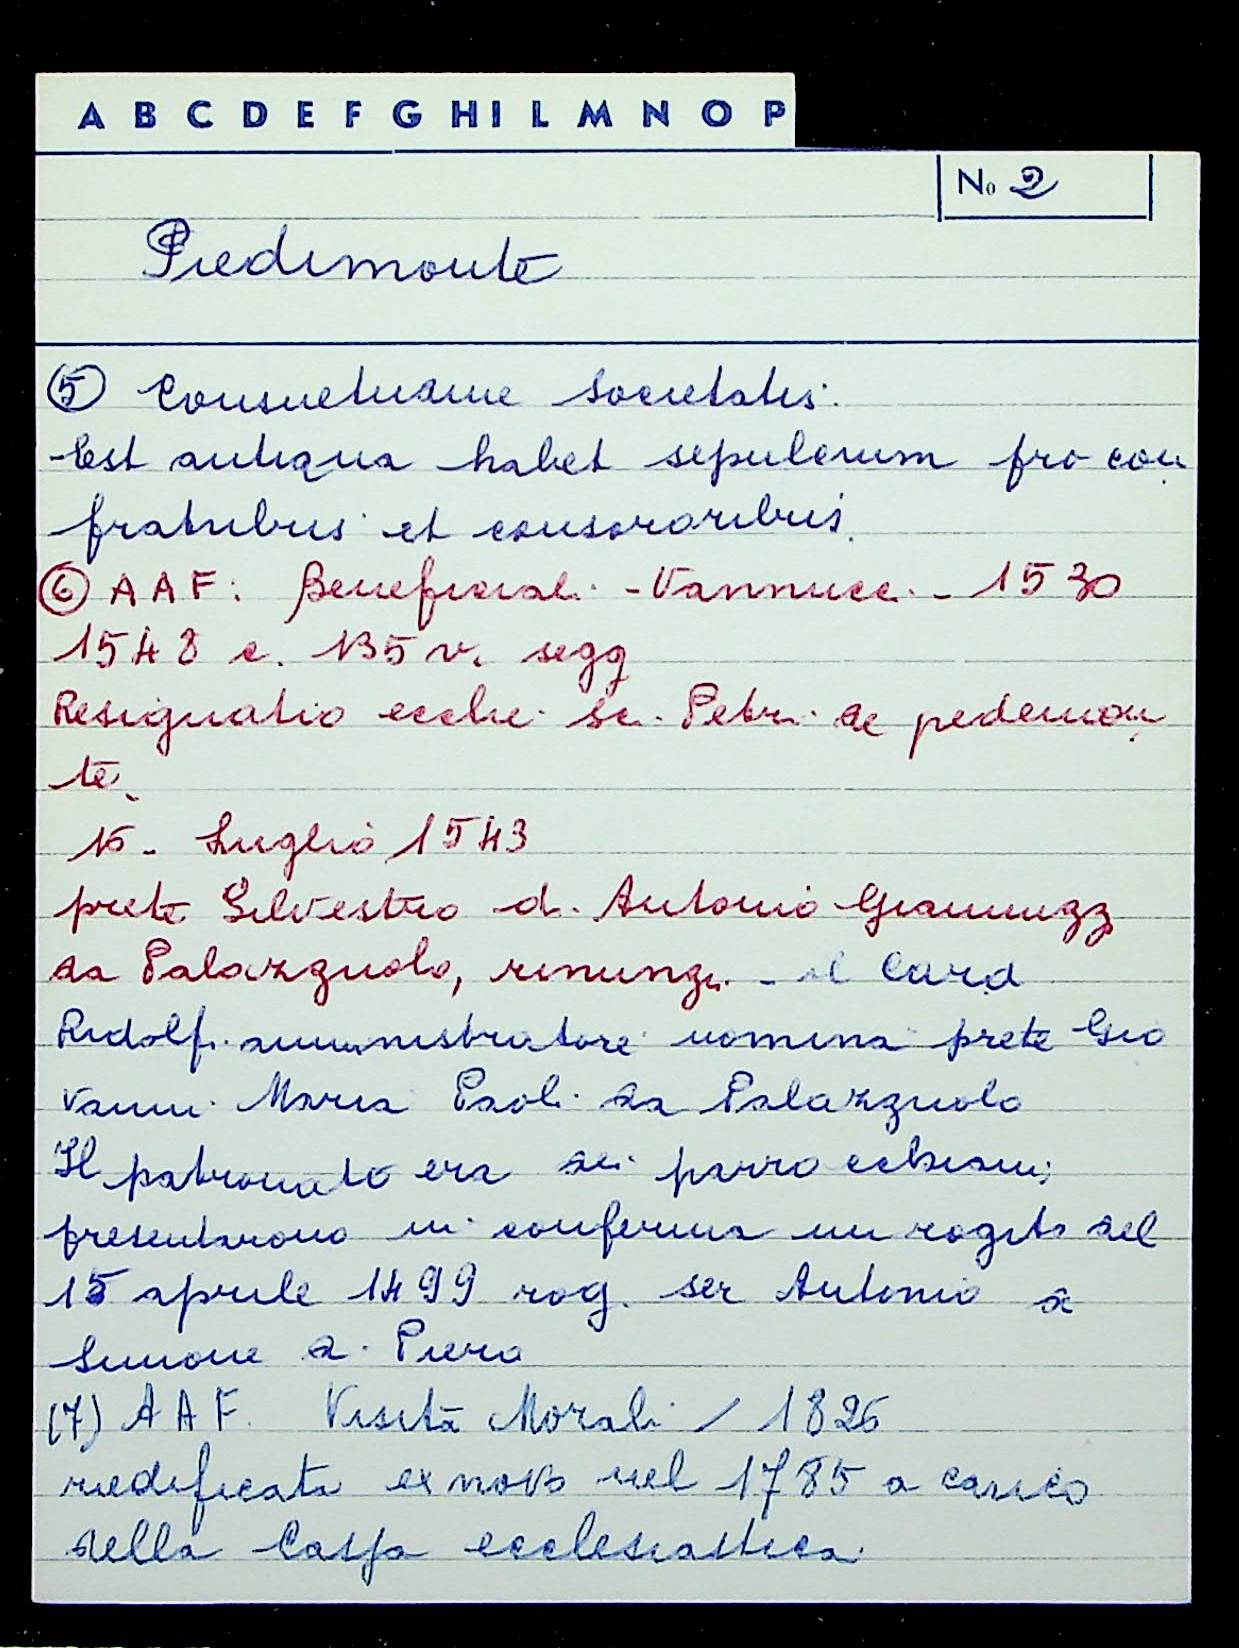 A B C D E F G H I L M N O P
No 2
Piedimonte
(5) Consuetudine Societatis:
-Est antiqua habet sepulcrum pro con
fratribus et consororibus.
(6) A A F: Beneficiali - Vannucci - 1530
1548 c. 135 v. segg
Resignatio ecclie sci. Petri de pedemon
te.
16 - Luglio 1543
prete Silvestro di Antonio Giannuzzi
da Palazzuolo, rinunzi. - il Card
Ridolfi amministratore nomina prete Gio
vanni Maria Paoli da Palazzuolo
Il patronato era dei parrocchiani;
presentarono in conferma un rogito del
15 aprile 1499 rog. ser Antonio di
Simone di Piero
(7) A A F. Visita Morali / 1826
riedificata ex novo nel 1785 a carico
della Cassa ecclesiastica